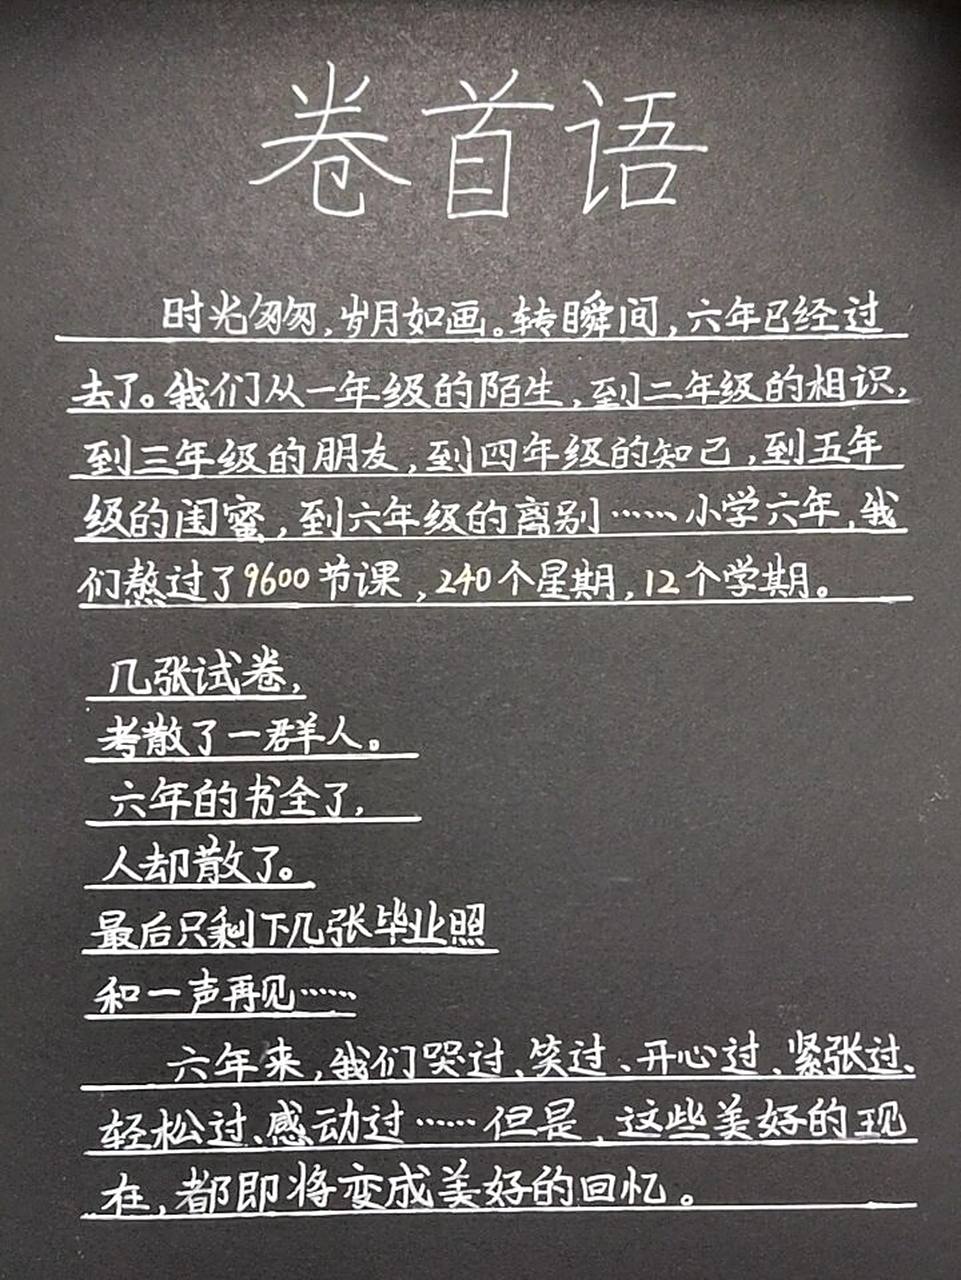 卷首语
时光匆匆,岁月如画。转瞬间,六年已经过
去了。我们从一年级的陌生,到二年级的相识,
到三年级的朋友,到四年级的知己,到五年
级的闺蜜,到六年级的离别……小学六年,我
们熬过了9600节课,240个星期,12个学期。
几张试卷,
考散了一群人。
六年的书全了,
人却散了。
最后只剩下几张毕业照
和一声再见……
六年来,我们哭过、笑过、开心过、紧张过、
轻松过、感动过……但是,这些美好的现
在,都即将变成美好的回忆。